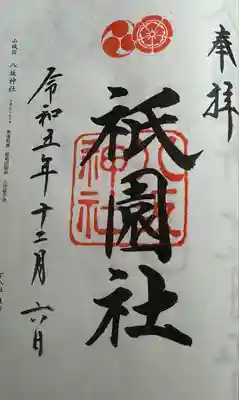 奉拝
八坂神社
祇園社
令和五年十二月六日
山城国 八坂神社